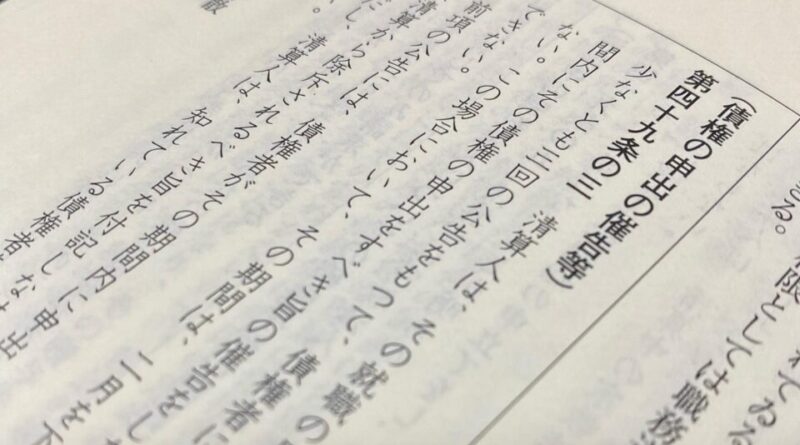 れてゐる
権限としては職務
きる。
（債権の申出の催告等）
第四十九条の三　清算人は、その就職の
少なくとも三回の公告をもつて、債権者に
間内にその債権の申出をすべき旨の催告をし
ない。この場合において、その期間は、二月を下
できない。
前項の公告には、債権者がその期間内に申出
清算から除斥されるべき旨を付記しな
だし、清算人は、知れている債権者
い。